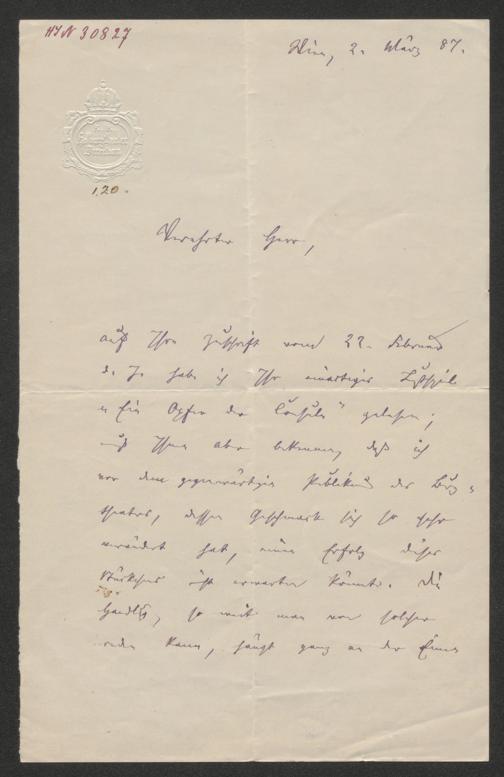 HJN 30827
Wien, 2. März 87.
1,20.
Verehrter Herr,
auf Ihre Zuschrift vom 22. Februar
d. J. habe ich Ihr einartiges Lustspiel
„Ein Opfer der Consuln“ gelesen;
muß Ihnen aber bekennen, daß ich
vor dem gegenwärtigen Publikum des Burg-
theaters, dessen Geschmack sich so sehr
verändert hat, einen Erfolg dieses
Stückchens nicht erwarten könnte. Die
Handlg, so weit man von solcher
reden kann, hängt ganz an der